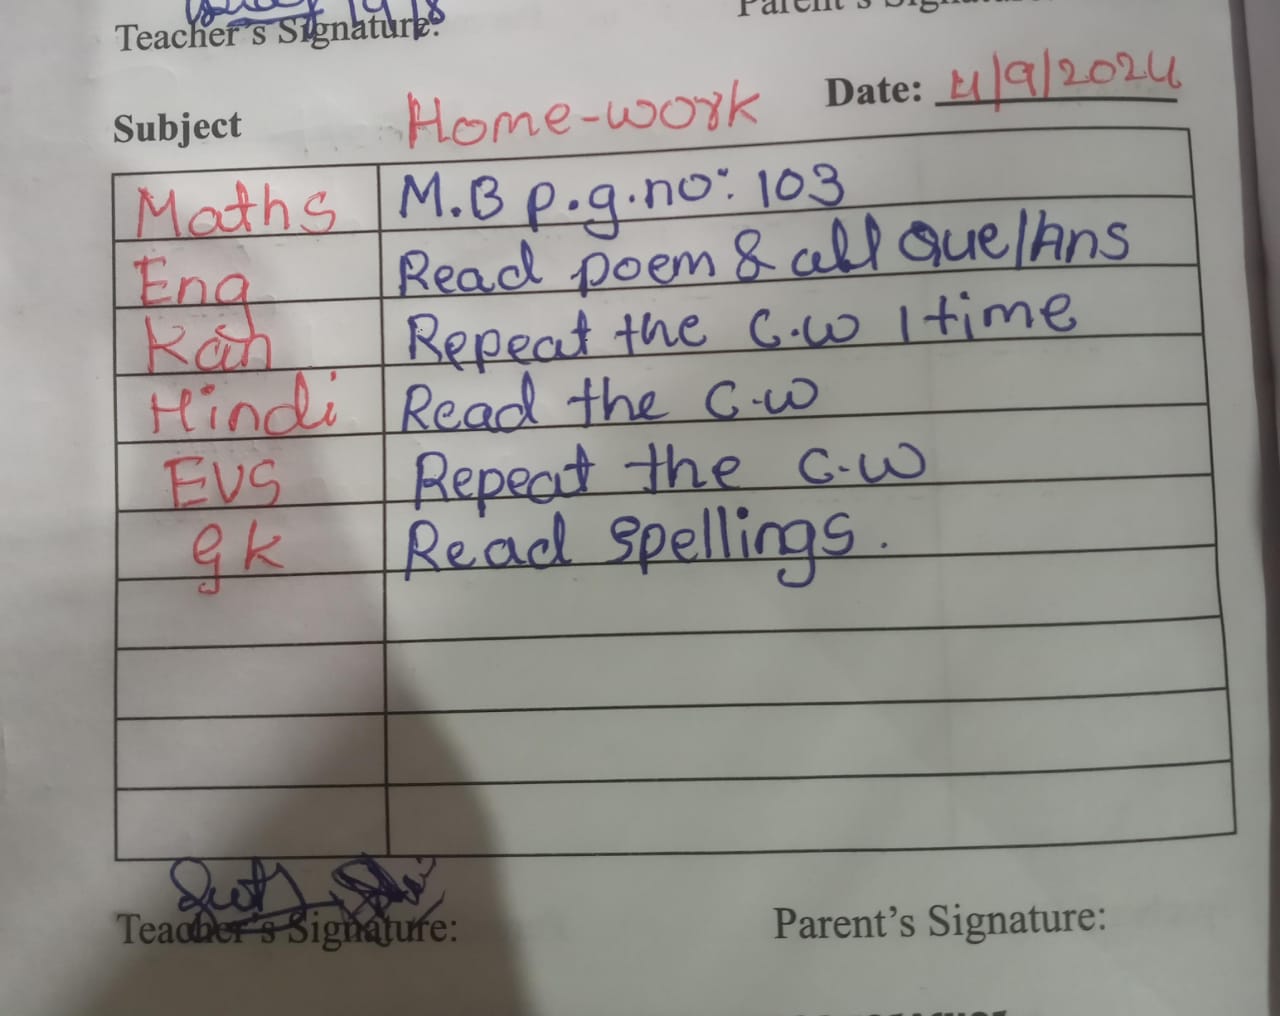 Teacher's Signature:
Parent's Signature:
Subject Home-work Date: 4/9/2024
Maths M.B p.g.no: 103
Eng Read poem & all Que/Ans
Kan Repeat the C.W 1 time
Hindi Read the C.W
EVS Repeat the C.W
gk Read spellings.
Teacher's Signature:
Parent's Signature: